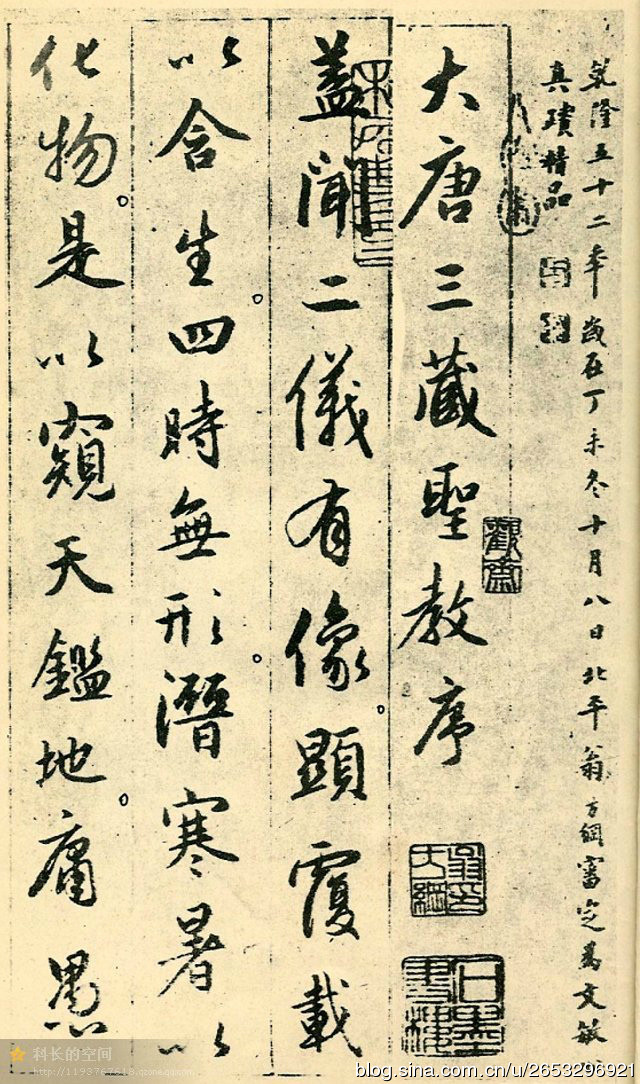 乾隆五十二年歲在丁未冬十月八日北平翁方綱審定為文敏
真蹟精品
大唐三藏聖教序
蓋聞二儀有像顯覆載
以含生四時無形潛寒暑以
化物是以窺天鑑地庸愚
翁方綱
石墨書樓
科长的空间
http://1193767618.qzone.qq.com
blog.sina.com.cn/u/2653296921